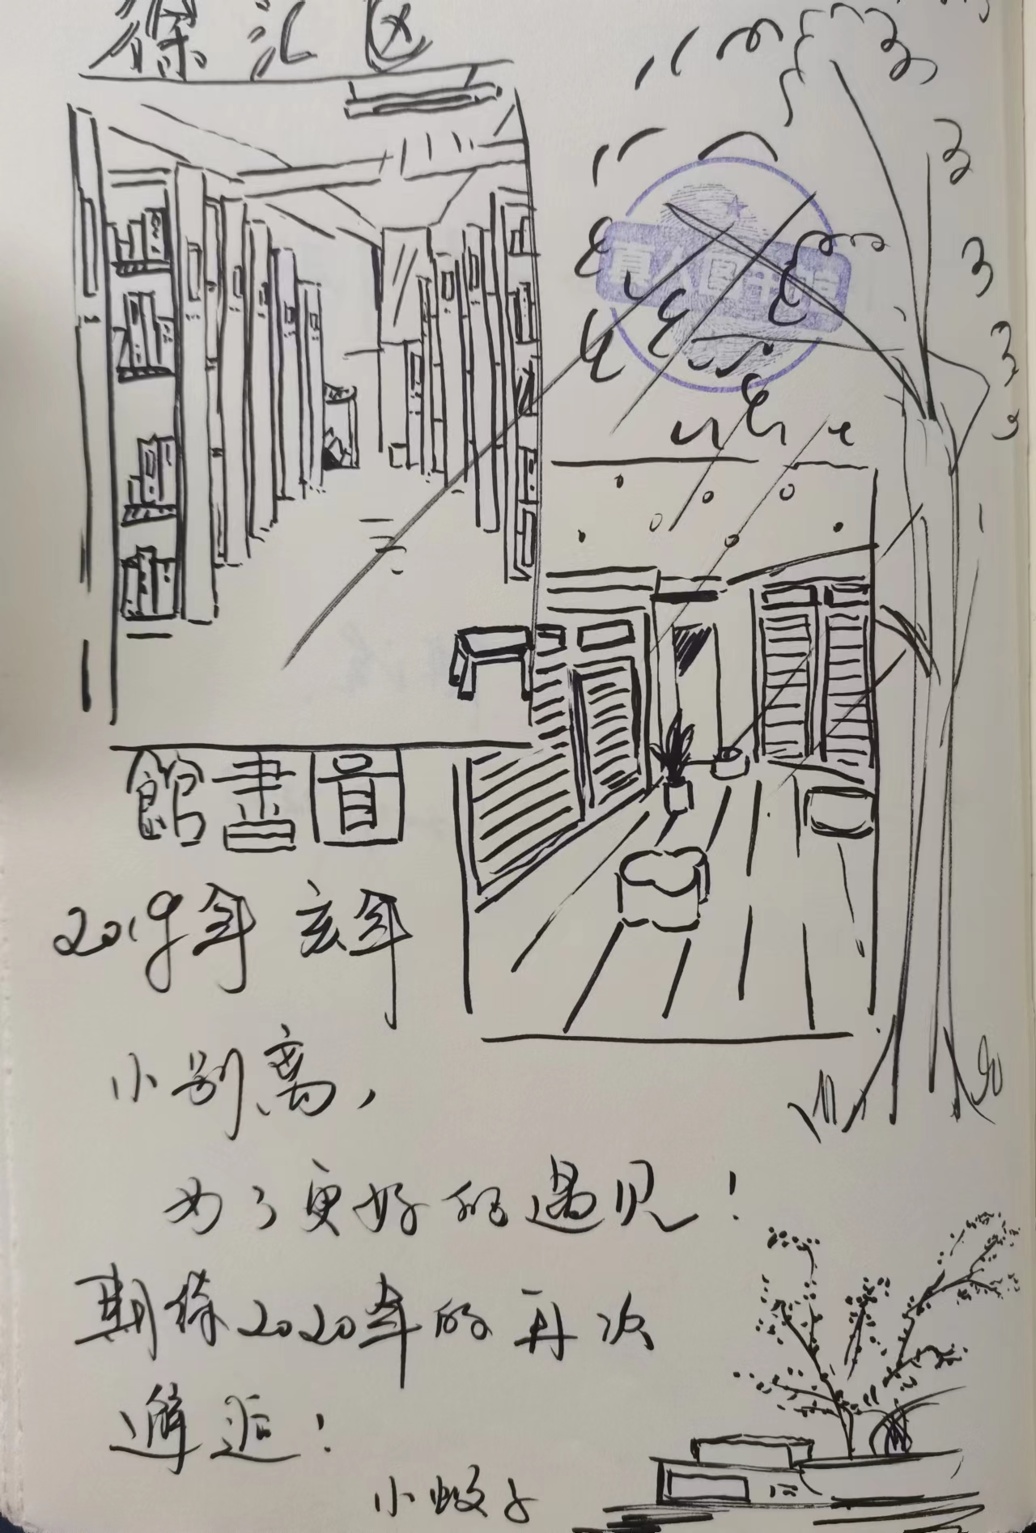 徐汇区
真人图书馆
圖書館
2019年 亥年
小别离，
为了更好的遇见！
期待2020年的再次
邂逅！
小蚊子